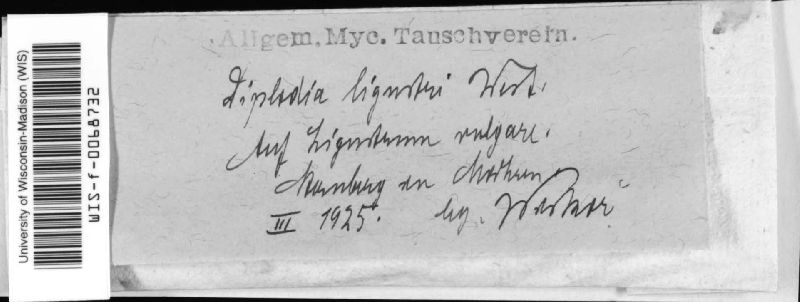 University of Wisconsin-Madison (WIS)
WIS-f-0068732
Allgem. Myc. Tauschverein.
Diplodia ligustri West.
Auf Ligustrum vulgare.
Sternberg in Mähren
III 1925. lg.